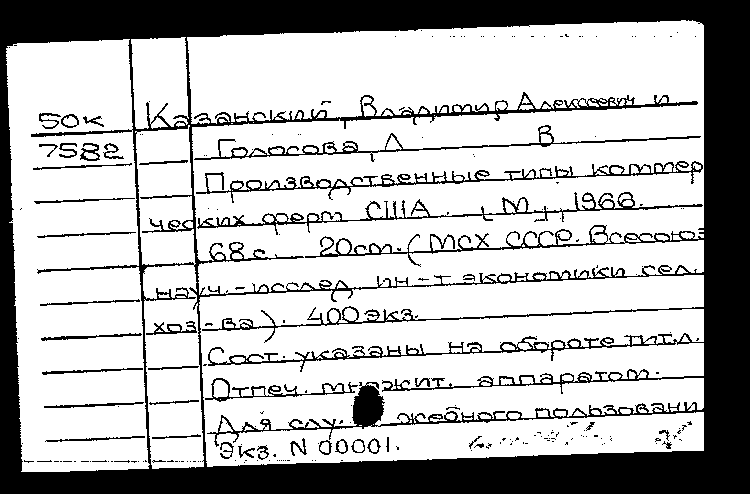 50к Казанский, Владимир Алексеевич и
7582 Голосова, Л В
Производственные типы коммер
ческих ферм США. [М.], 1966.
68 с. 20 см. (МСХ СССР. Всесоюз
науч.-исслед. ин-т экономики сел.
хоз-ва). 400 экз.
Сост. указаны на обороте тит. л.
Отпеч. множит. аппаратом.
Для слу. жебного пользовани
Экз. N 00001.